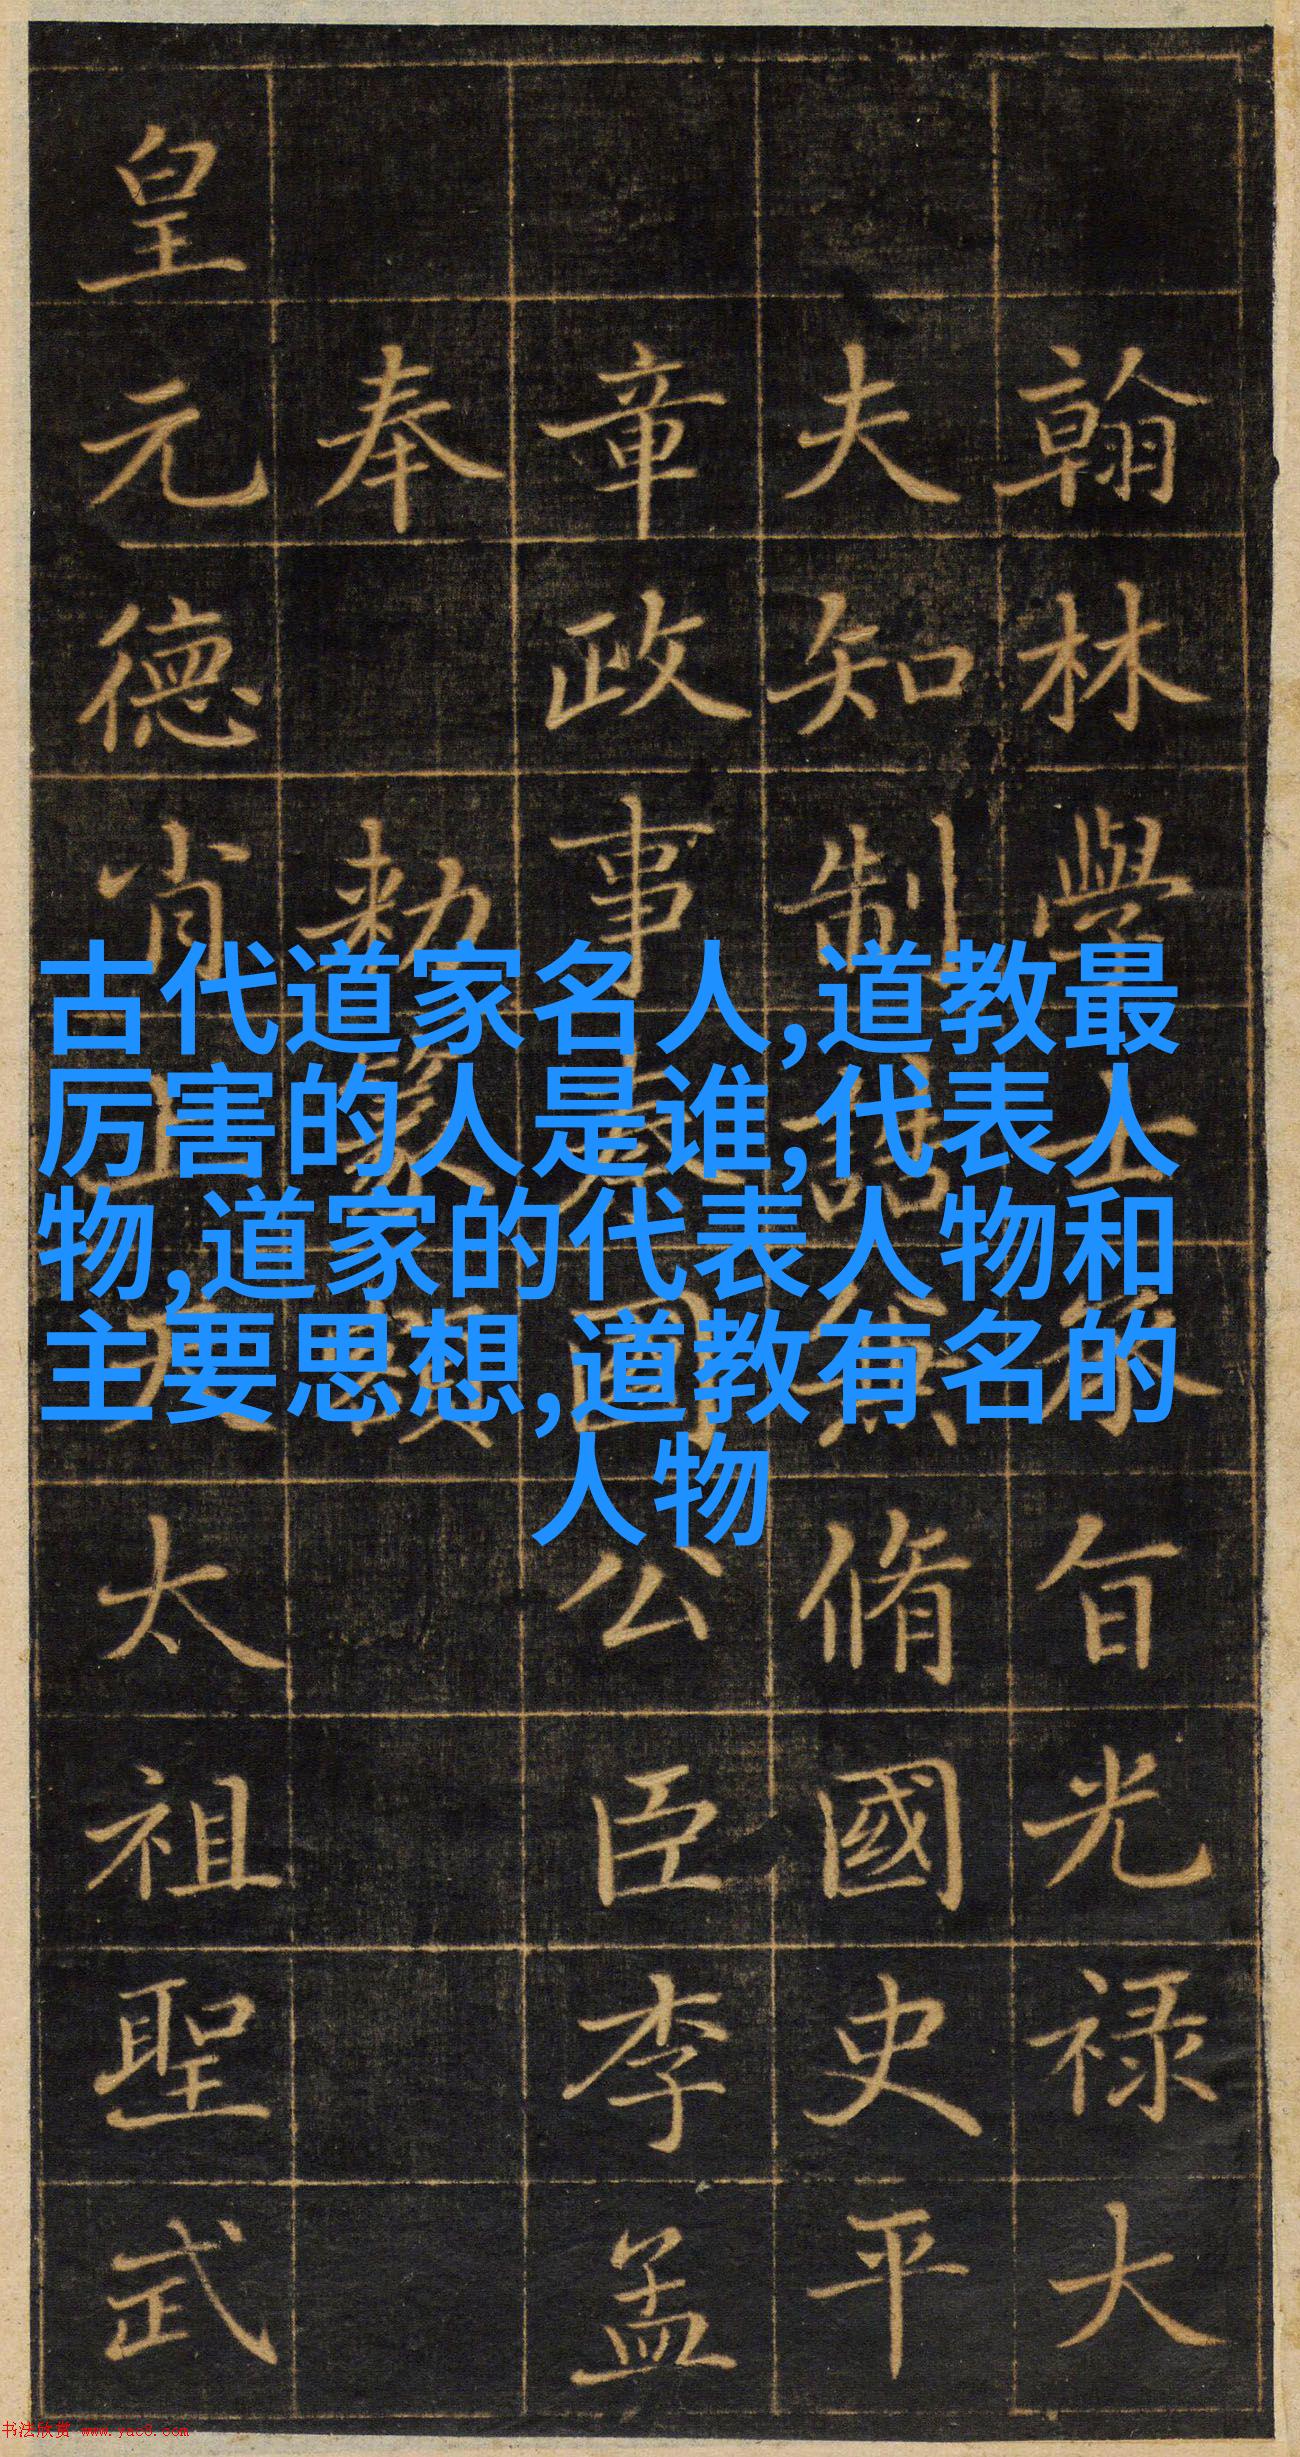 翰林學士承旨光禄大
夫知制誥兼脩國史平
章政事秦國公臣李孟
奉勑篆額
皇元德肖上天太祖聖武
古代道家名人,道教最
厉害的人是谁,代表人
物,道家的代表人物和
主要思想,道教有名的
人物
书法欣赏 www.yac8.com